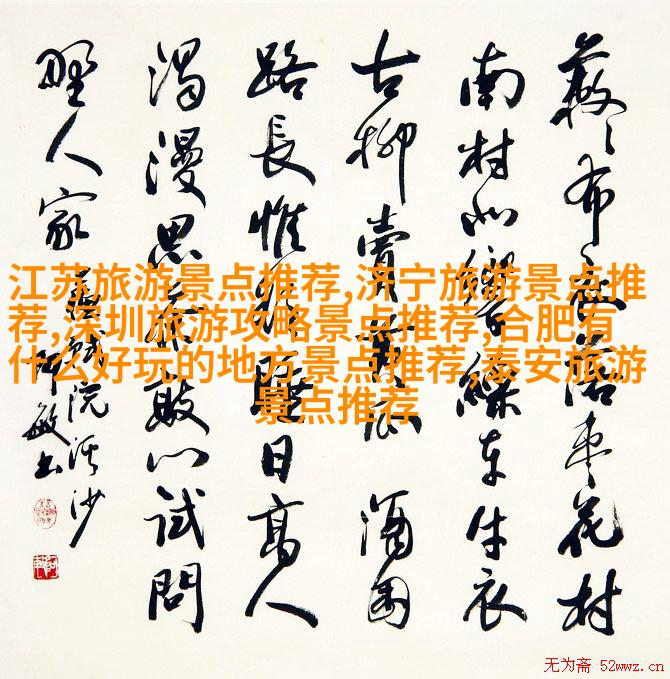 蔌々落枣花村
南村北響繰车牛衣
古柳賣黄瓜 酒困
路長惟欲睡日高人
渴漫思茶敲门試問
野人家
蘇軾浣溪沙
敏书
江苏旅游景点推荐,济宁旅游景点推
荐,深圳旅游攻略景点推荐,合肥有
什么好玩的地方景点推荐,泰安旅游
景点推荐
无为斋 52wwz.cn